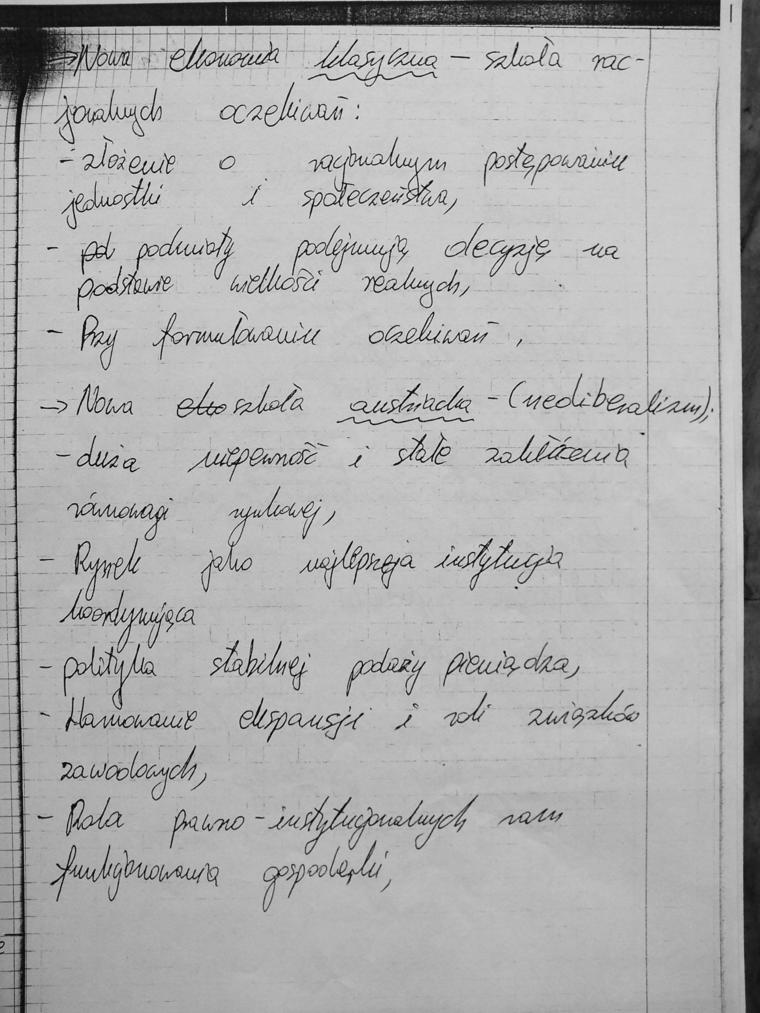 → Nowa ekonomia klasyczna - szkoła rac-
jonalnych oczekiwań:
- złożenie o racjonalnym postępowaniu
jednostki i społeczeństwa,
- pd podmioty podejmują decyzję na
podstawie wielkości realnych,
- Przy formułowaniu oczekiwań,
→ Nowa eko szkoła austriacka - (neoliberalizm);
- duża niepewność i stałe zakłócenia
równowagi rynkowej,
- Rynek jako najlepsza instytucja
koordynująca
- polityka stabilnej podaży pieniądza,
- Hamowanie ekspansji i roli związków
zawodowych,
- Rola prawno-instytucjonalnych ram
funkcjonowania gospodarki,